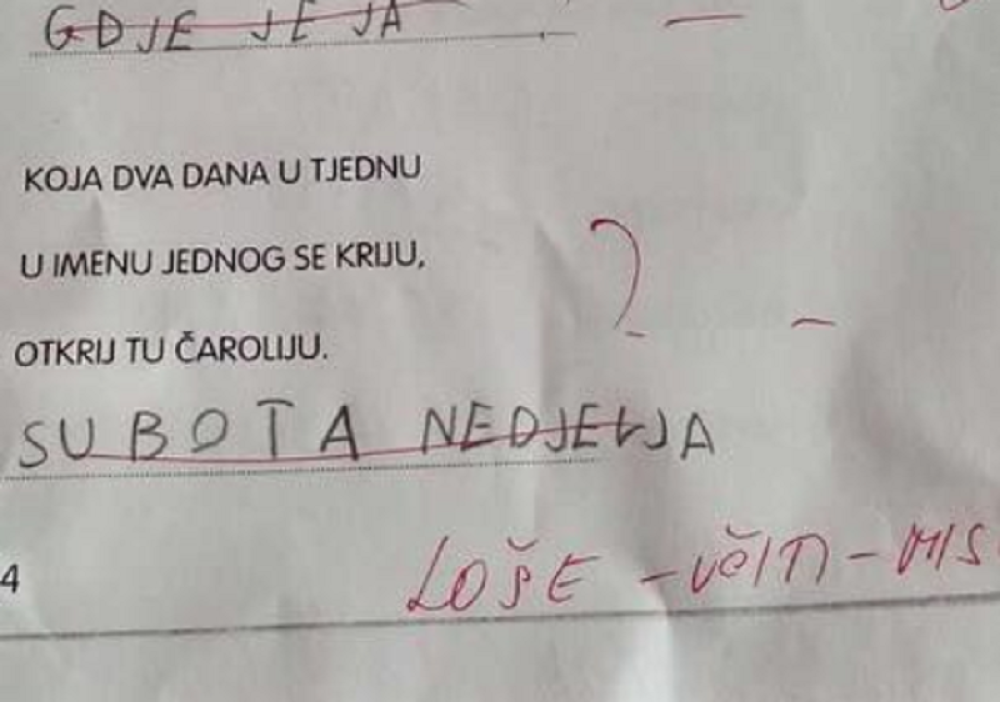 GDJE JE JA
KOJA DVA DANA U TJEDNU
U IMENU JEDNOG SE KRIJU,
?
OTKRIJ TU ČAROLIJU.
SUBOTA NEDJELJA
4
LOŠE - UČITI -